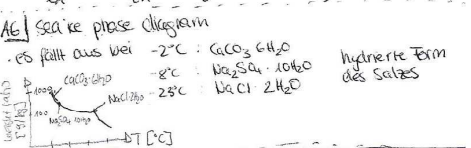 A6 | sea ice phase diagram
. es fällt aus bei -2°C : CaCO3 6H2O
-8°C : Na2SO4 · 10H2O
-23°C : NaCl · 2H2O
hydrierte Form
des Salzes
CaCO3·6H2O
NaCl·2H2O
Na2SO4 10H2O
1000
100
[g/kg]
T [°C]